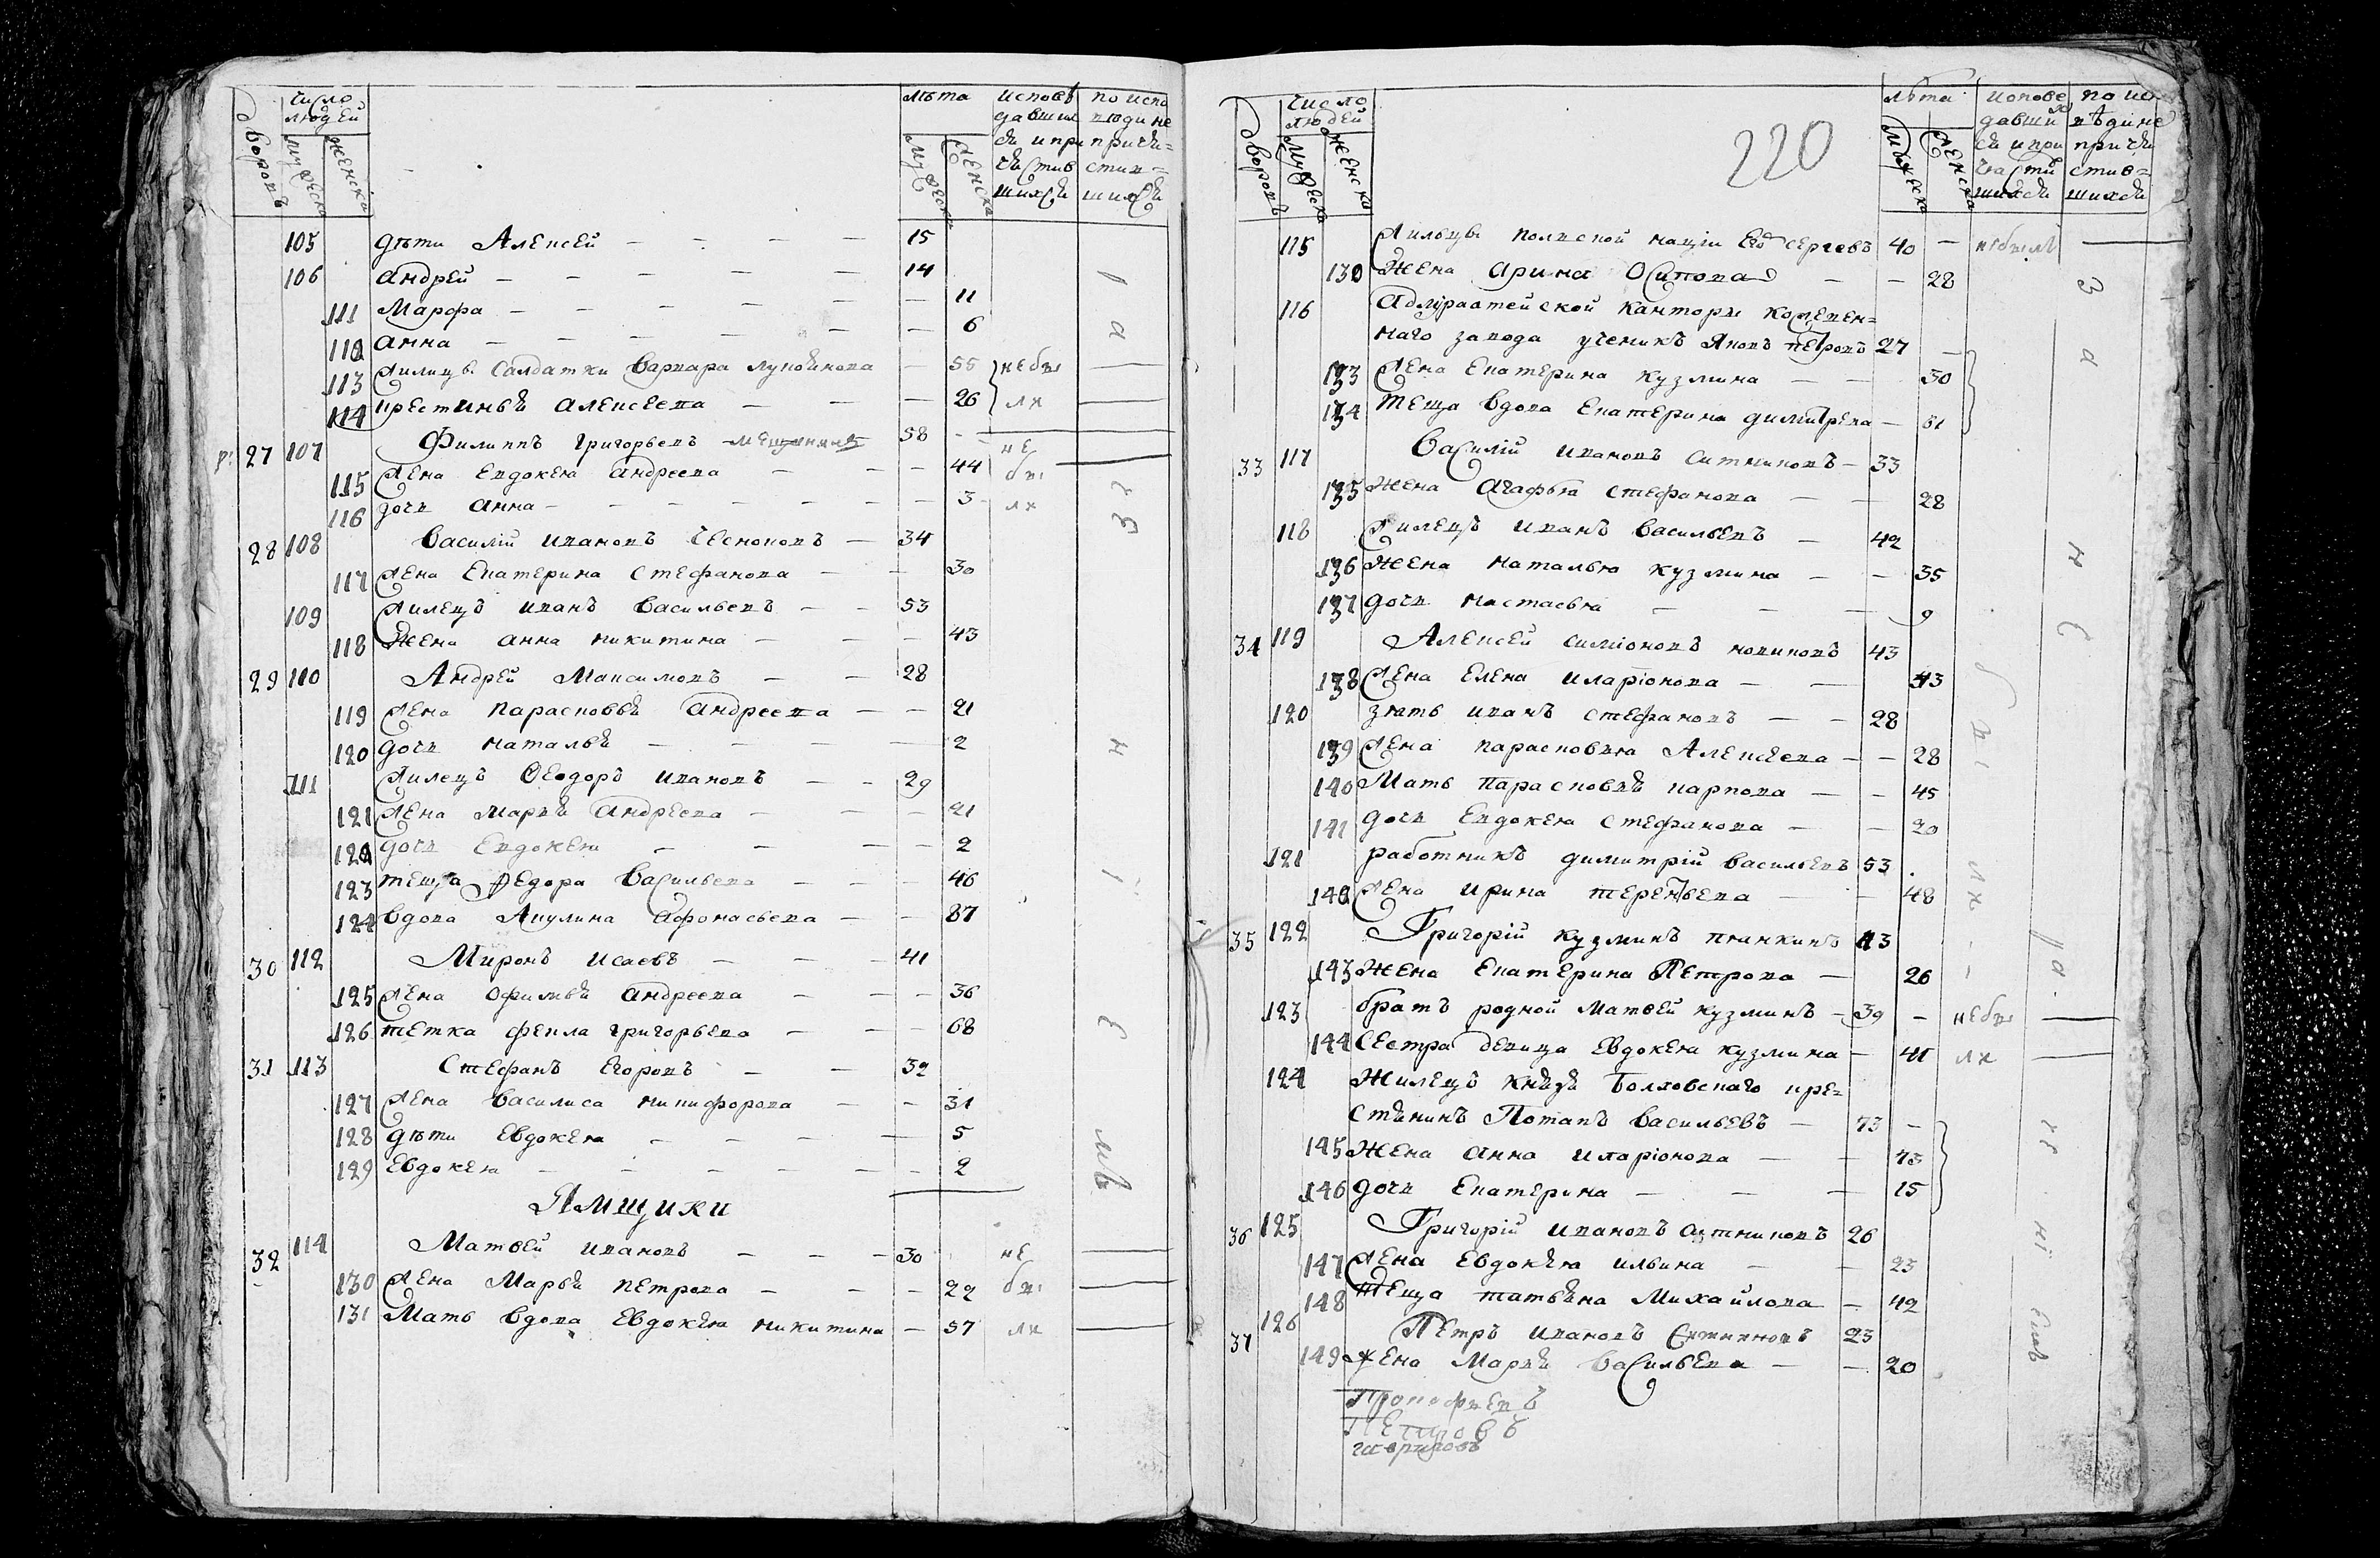 дворовъ число людей мужеска женска лѣта мужеска женска исповѣдавшихся и причастившихся по исповѣди не причастившихся
105 дѣти Алексей — — — — 15
106 андрей — — — — — 14
111 Марфа — — — — — 11
112 анна — — — — — 6
113 жилицы салдатки варвара лукоянова — 55 не бы
114 крестинья алексеева — — — 26 ли
27 107 Филиппъ григорьевъ 58 — не
115 жена евдокея андреева — — — 44 бы
116 дочь анна — — — — — 3 ли
28 108 василий ивановъ чесноковъ — 34
117 жена екатерина стефанова — — 30
109 жилецъ иванъ васильевъ — — 53
118 жена анна никитина — — — 43
29 110 Андрей Максимовъ — — 28
119 жена парасковья андреева — — 21
120 дочь наталья — — — — 2
111 жилецъ Ѳеодоръ ивановъ — — 29
121 жена марья андреева — — — 21
122 дочь евдокея — — — — 2
123 теща федора васильева — — — 46
124 вдова акулина афонасьева — — 87
30 112 Миронъ исаевъ — — — 41
125 жена офимья андреева — — — 36
126 тетка фекла григорьева — — — 68
31 113 Стефанъ егоровъ — — 32
127 жена василиса никифорова — — 31
128 дѣти евдокея — — — — 5
129 евдокея — — — — — — 2
за неизнемъ
Ямщики
32 114 Матвей ивановъ — — — 30 не
130 жена Марья петрова — — — 22 бы
131 Мать вдова евдокея никитина — 57 ли
220
дворовъ число людей мужеска женска лѣта мужеска женска исповедавшихся и причастившихся по исповѣди не причастившихся
115 жилецъ полской нации сергеевъ 40 — не были
132 жена арина осипова — — 28
116 адмиралтейской канторы
наго завода ученикъ яковъ петровъ 27 —
133 жена екатерина кузмина — — 30
134 теща вдова екатерина димитрева — 81
33 117 василій ивановъ ситниковъ — 33
135 жена агафья стефанова — — 28
118 жилецъ иванъ васильевъ — 42
136 жена наталья кузмина — — 35
137 дочь настасья — — — 9
34 119 Алексей симионовъ новиковъ 43
138 жена елена иларіонова — — 43
120 зять иванъ стефановъ — — 28
139 жена парасковья Алексеева — — 28
140 Мать парасковья карпова — — 45
141 дочь евдокея стефанова — — 20
121 работникъ димитрій васильевъ 53
142 жена ирина терентьева — — 48
35 122 Григорій кузминъ 43
143 жена екатерина петрова — 26
123 братъ родной Матвей кузминъ — 39 — не бы
144 Сестра девица евдокея кузмина — 41 ли
124 Жилецъ князя Болховскаго кре=
стянинъ Потапъ васильевъ — 73 —
145 жена анна иларіонова — — 73
146 дочь екатерина — — — 15
36 125 Григорій ивановъ ситниковъ 26
147 жена евдокея ильина — — 23
148 теща татьяна Михайлова — 42
37 126 Петръ ивановъ ситниковъ 23
149 жена Марья васильева — — 20
Прокофьевъ
Петровъ
гавриловъ